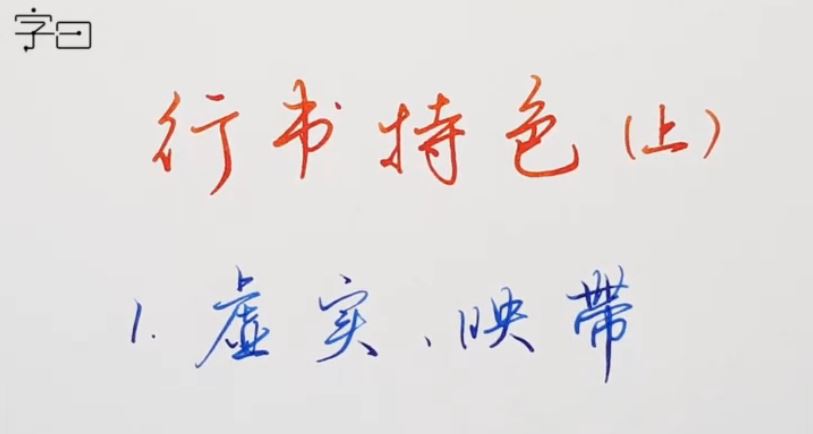 字曰
行书特色(上)
1.虚实、映帶